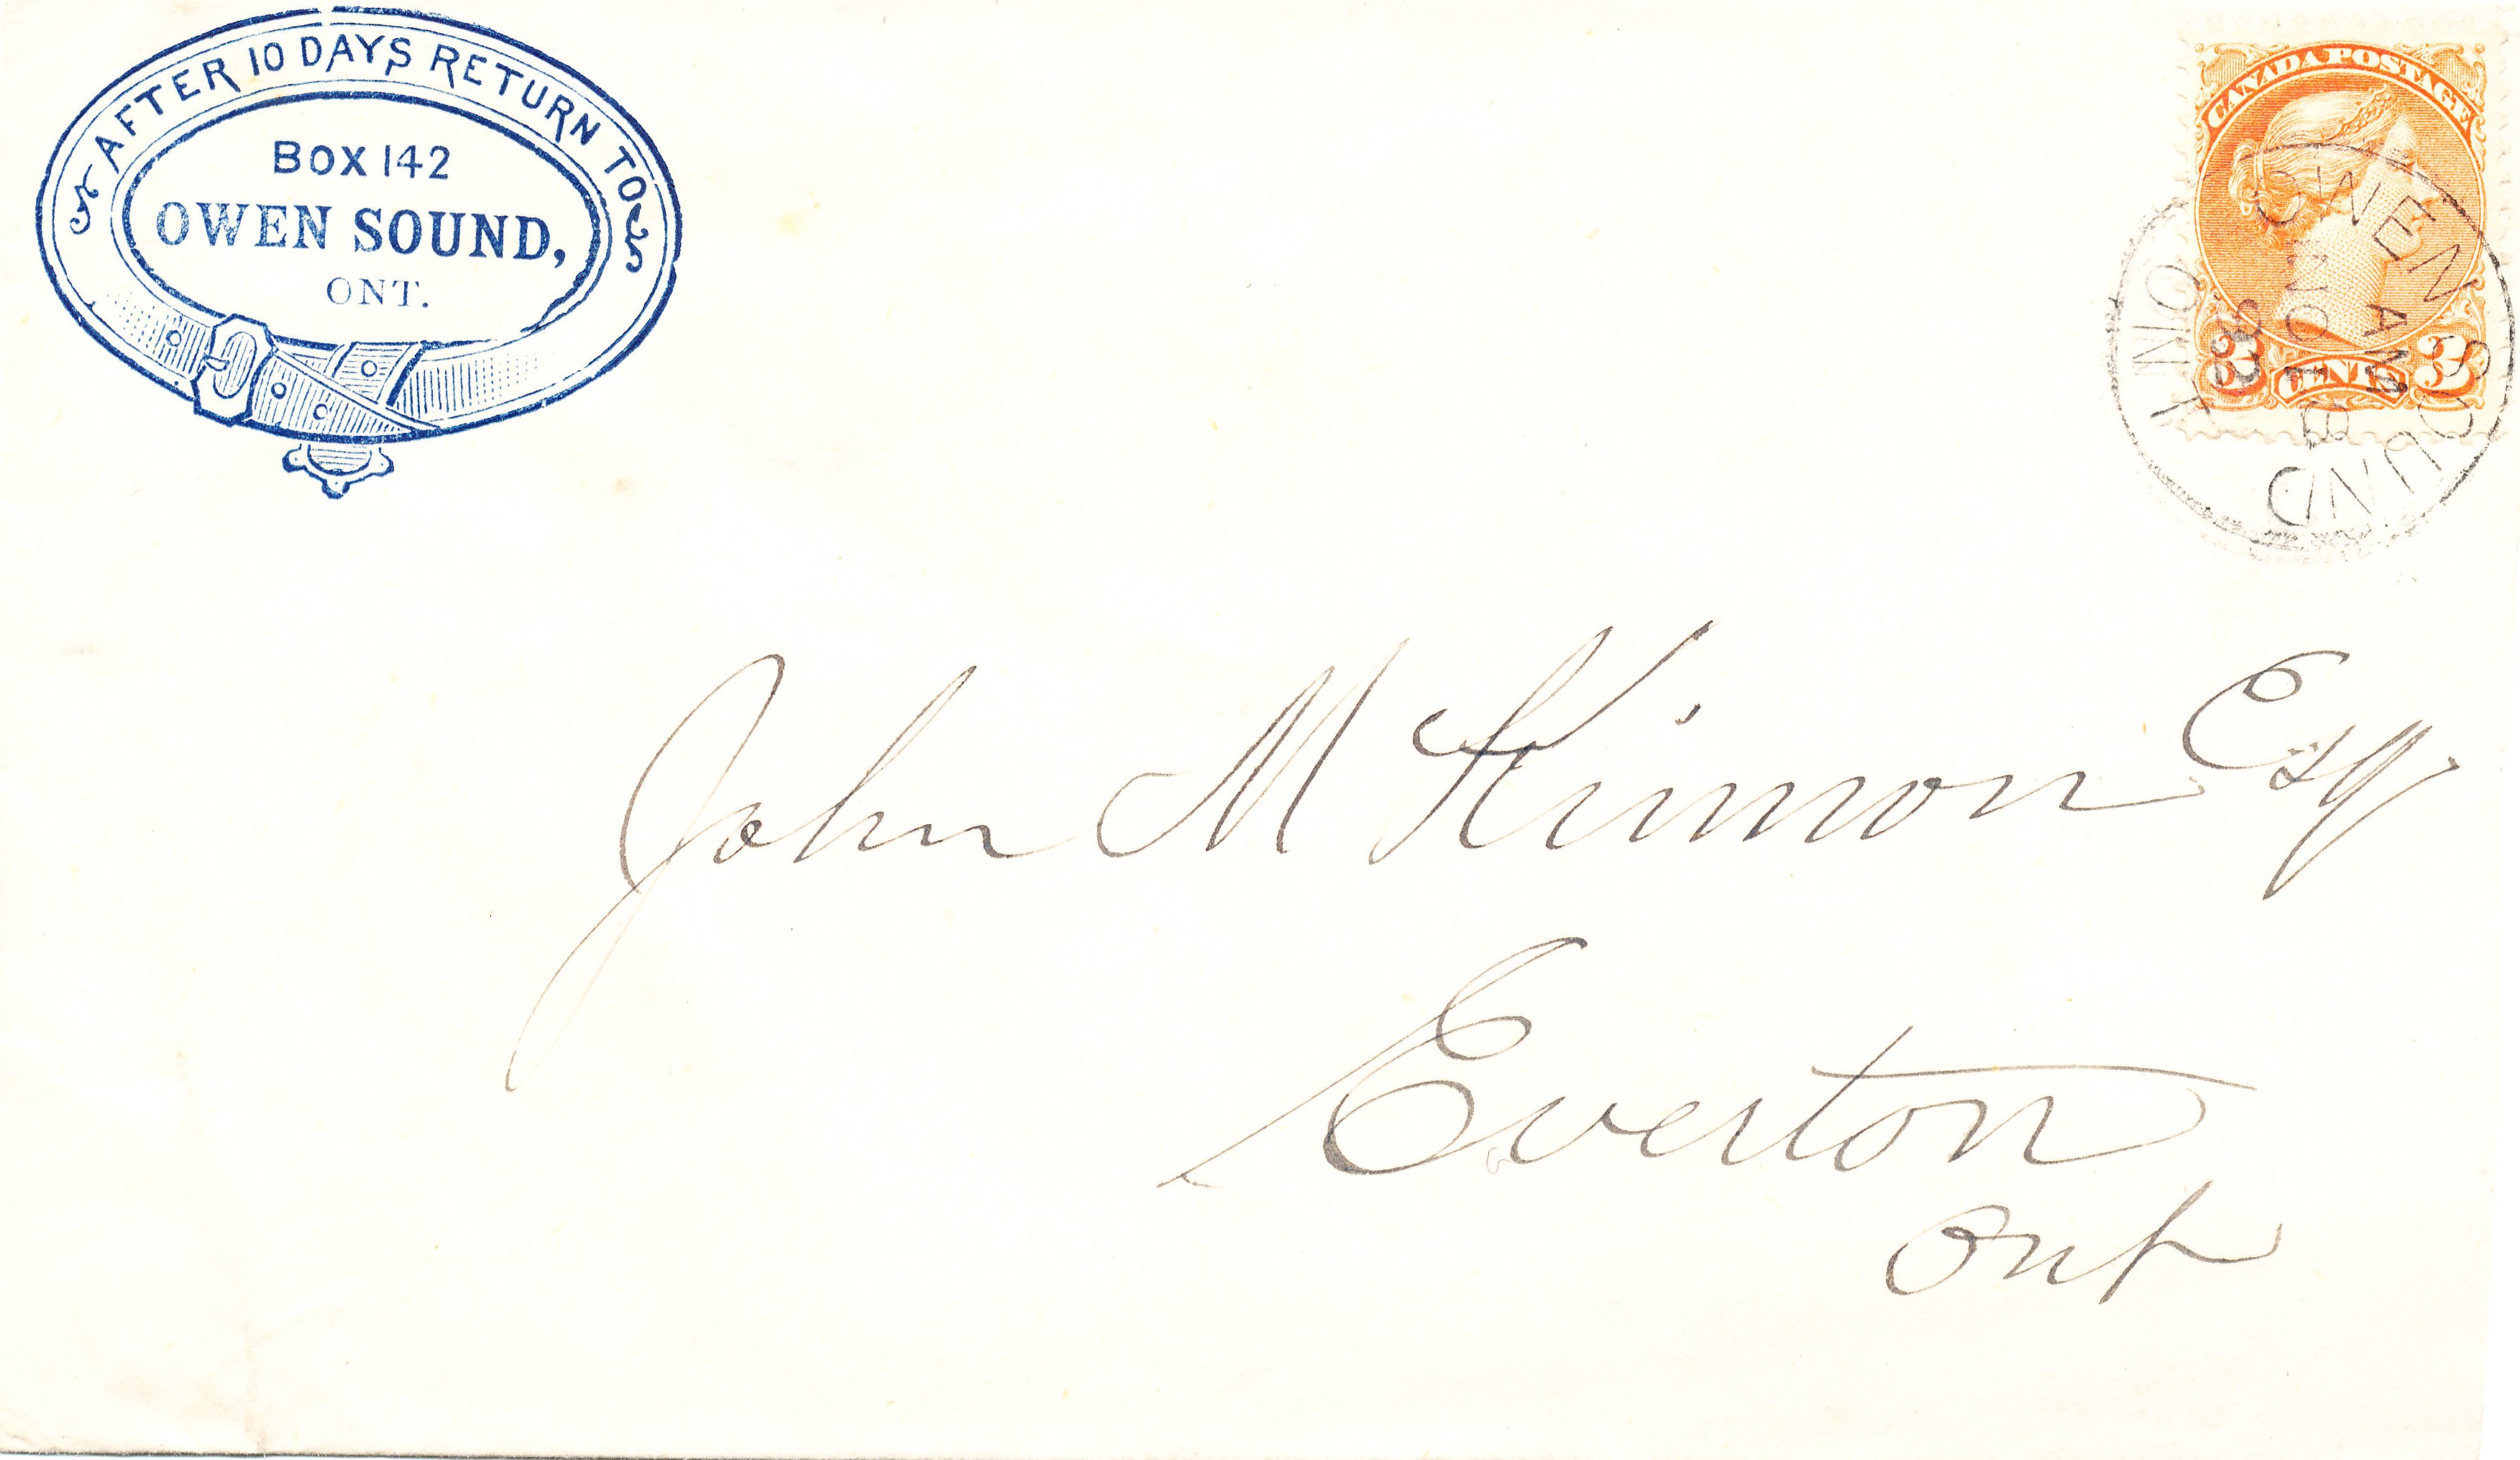 AFTER 10 DAYS RETURN TO
BOX 142
OWEN SOUND,
ONT.
CANADA POSTAGE
3 CENTS 3
OWEN SOUND
AM
NO 18
82
ONT
John M Kinnon Esq
Everton
Ont